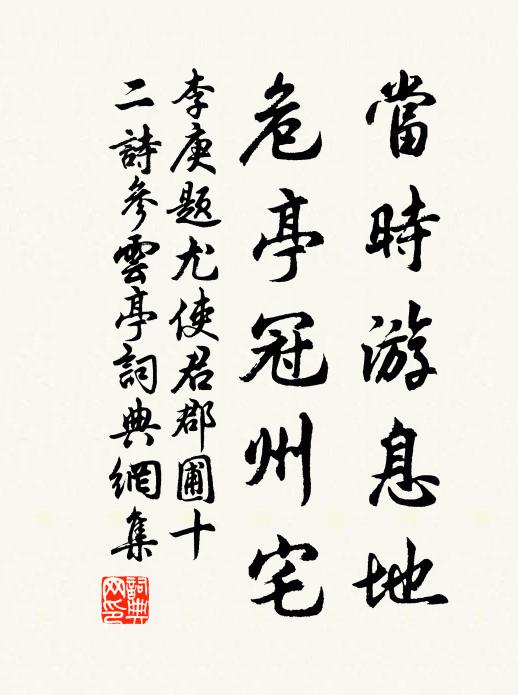 當時游息地
危亭冠州宅
李庚題尤使君郡圃十
二詩參雲亭詞典網集
詞典
网印